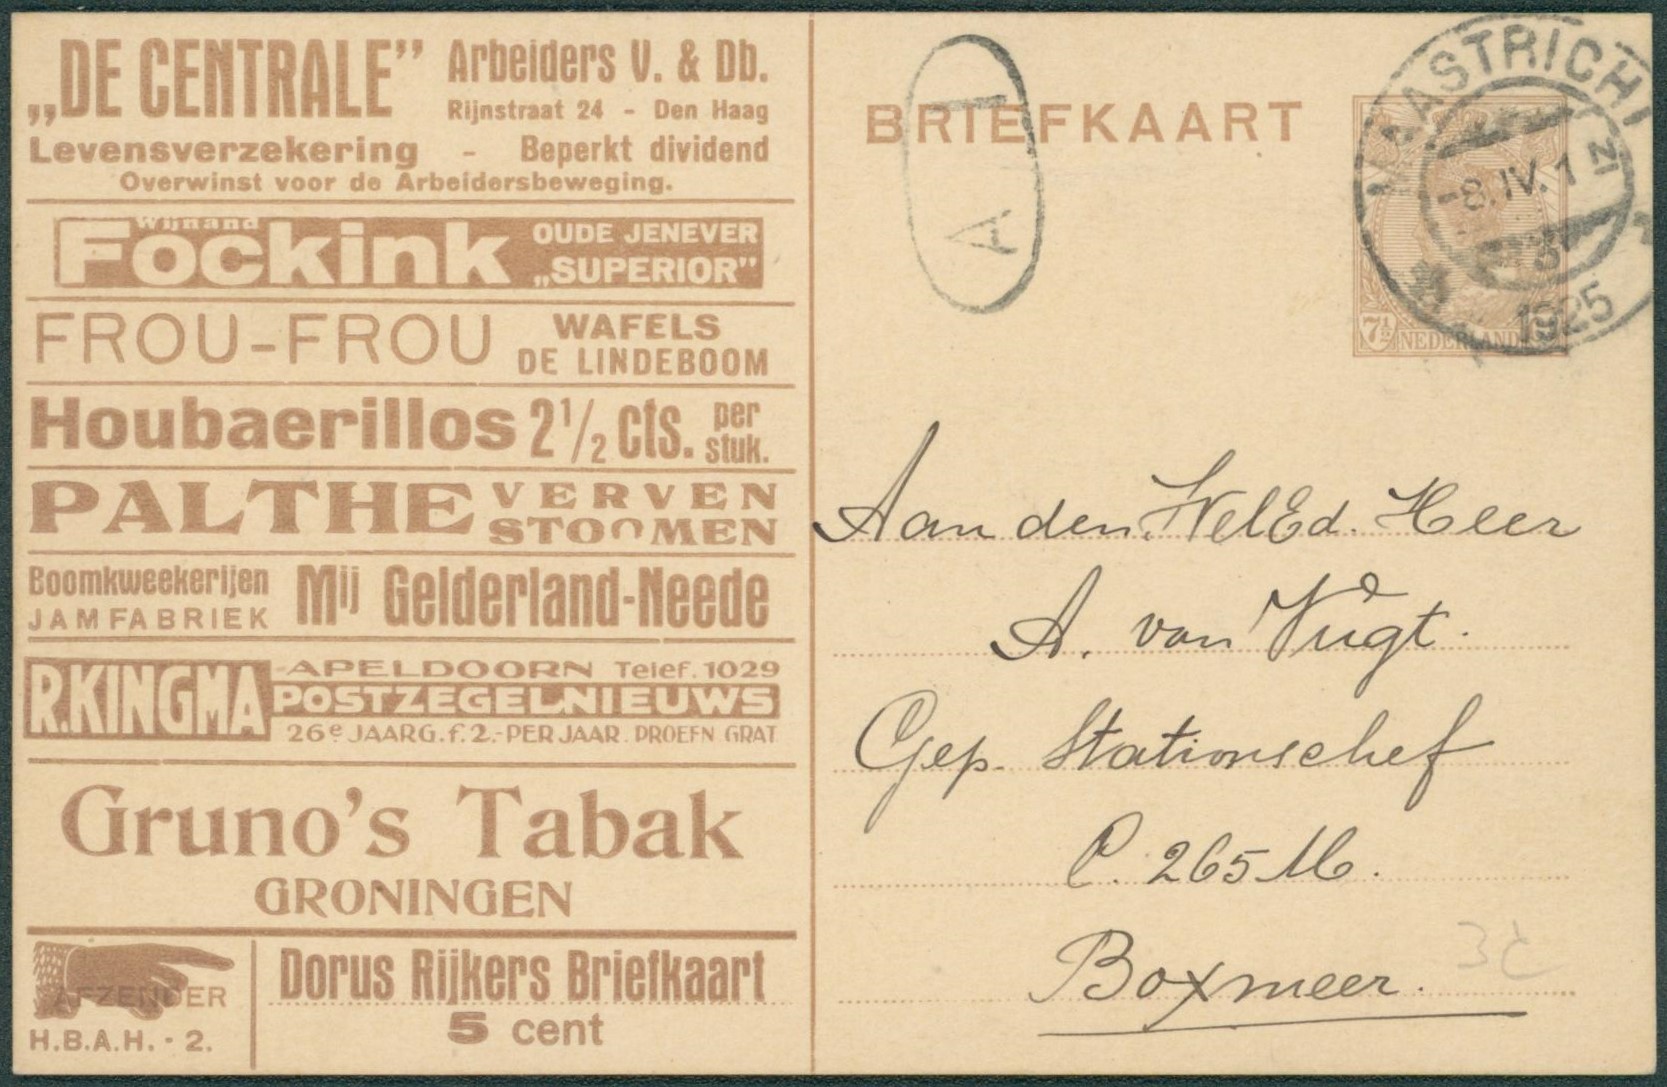 „DE CENTRALE” Arbeiders V. & Db.
Rijnstraat 24 - Den Haag
Levensverzekering - Beperkt dividend
Overwinst voor de Arbeidersbeweging.
Wijnand
Fockink OUDE JENEVER
„SUPERIOR”
FROU-FROU WAFELS
DE LINDEBOOM
Houbaerillos 2½ cts. per
stuk.
PALTHE VERVEN
STOOMEN
Boomkweekerijen
JAMFABRIEK Mij Gelderland-Neede
R.KINGMA -APELDOORN Telef. 1029
POSTZEGELNIEUWS
26e JAARG. f. 2.- PER JAAR. PROEFN GRAT
Gruno's Tabak
GRONINGEN
AFZENDER
H.B.A.H. - 2.
Dorus Rijkers Briefkaart
5 cent
BRIEFKAART
A
MAASTRICHT
-8.IV.1 N
1925
7½ NEDERLAND
Aan den WelEd. Heer
A. van Vugt.
Gep. Stationschef
C. 265 M.
Boxmeer.